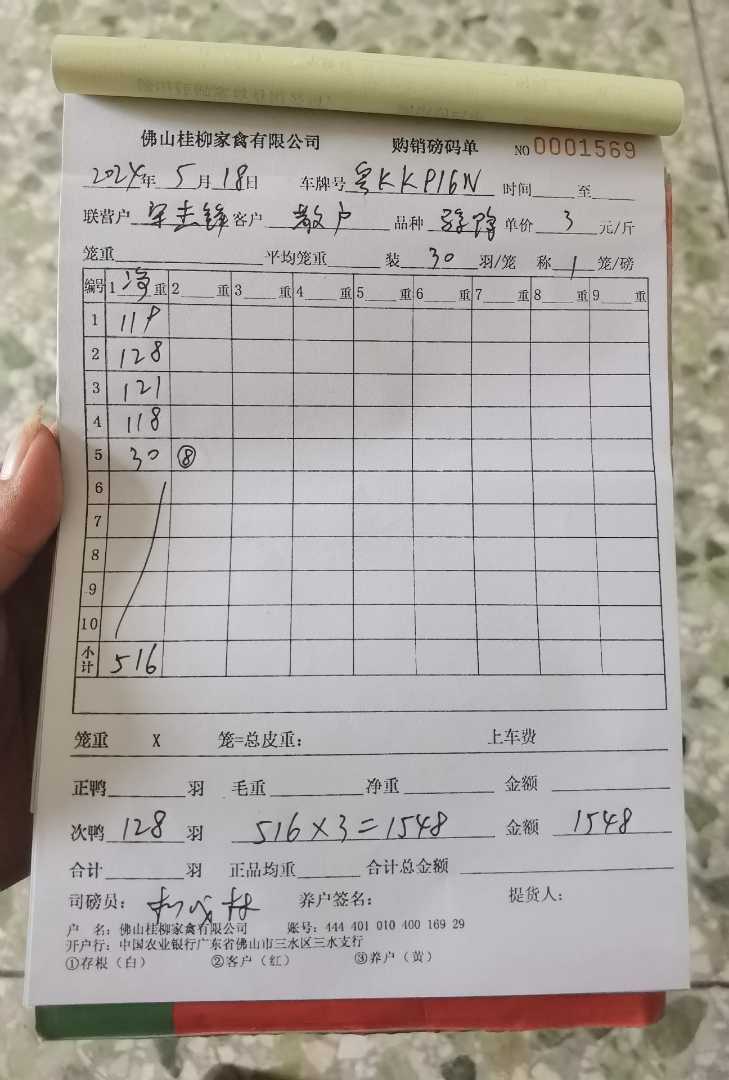 佛山桂柳家禽有限公司 购销磅码单 NO 0001569
2024年 5月 18日 车牌号 粤KKP16N 时间 至
联营户 客户 散户 品种 单价 3 元/斤
笼重 平均笼重 装 30 羽/笼 称 1 笼/磅
编号 1 净 重 2 重 3 重 4 重 5 重 6 重 7 重 8 重 9 重
1 119
2 128
3 121
4 118
5 30 ⑧
6
7
8
9
10
小计 516
笼重 X 笼=总皮重: 上车费
正鸭 羽 毛重 净重 金额
次鸭 128 羽 516×3=1548 金额 1548
合计 羽 正品均重 合计总金额
司磅员: 养户签名: 提货人:
户 名: 佛山桂柳家禽有限公司 账号: 444 401 010 400 169 29
开户行: 中国农业银行广东省佛山市三水区三水支行
①存根(白) ②客户(红) ③养户(黄)